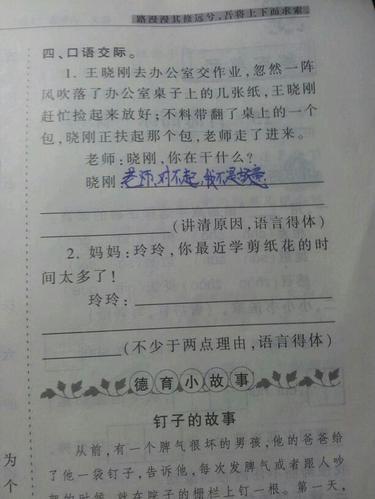 路漫漫其修远兮,吾将上下而求索
四、口语交际。
1. 王晓刚去办公室交作业,忽然一阵
风吹落了办公室桌子上的几张纸,王晓刚
赶忙捡起来放好;不料带翻了桌上的一个
包,晓刚正扶起那个包,老师走了进来。
老师:晓刚,你在干什么?
晓刚 老师,对不起,我不是故意
(讲清原因,语言得体)
2. 妈妈:玲玲,你最近学剪纸花的时
间太多了!
玲玲:
(不少于两点理由,语言得体)
德育小故事
钉子的故事
从前,有一个脾气很坏的男孩,他的爸爸给
了他一袋钉子,告诉他,每次发脾气或者跟人吵
架的时候,就在院子的栅栏上钉一根。第一天,
为
个